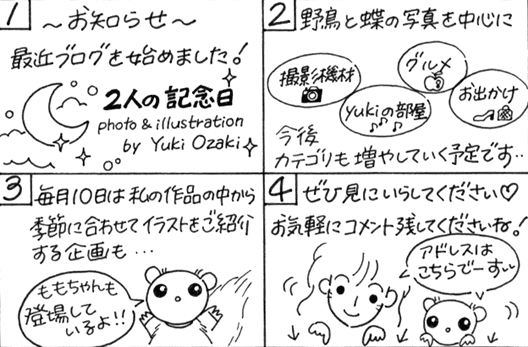 1
～お知らせ～
最近ブログを始めました!
2人の記念日
photo & illustration
by Yuki Ozaki
2
野鳥と蝶の写真を中心に
グルメ
撮影機材
お出かけ
yukiの部屋
今後
カテゴリも増やしていく予定です‥
3
毎月10日は私の作品の中から
季節に合わせてイラストをご紹介
する企画も…
ももちゃんも
登場して
いるよ!!
4
ぜひ見にいらしてください♡
お気軽にコメント残してくださいね!
アドレスは
こちらでーす〜